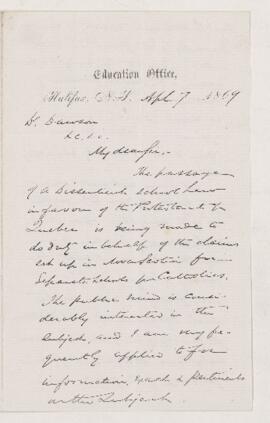 Education Office,
Halifax, N.S. Apl 7 1869
Dr. Dawson
&c. &c.
My dear Sir,-
The passage
of a Dissentient School Law
in favour of the Protestants of
Quebec is being made to
do duty in behalf of the claims
set up in Nova Scotia for
Separate Schools for Catholics.
The public mind is consi-
derably interested in the
subject, and I am very fre-
quently applied to for
information, exact & pertinent
on the subject.